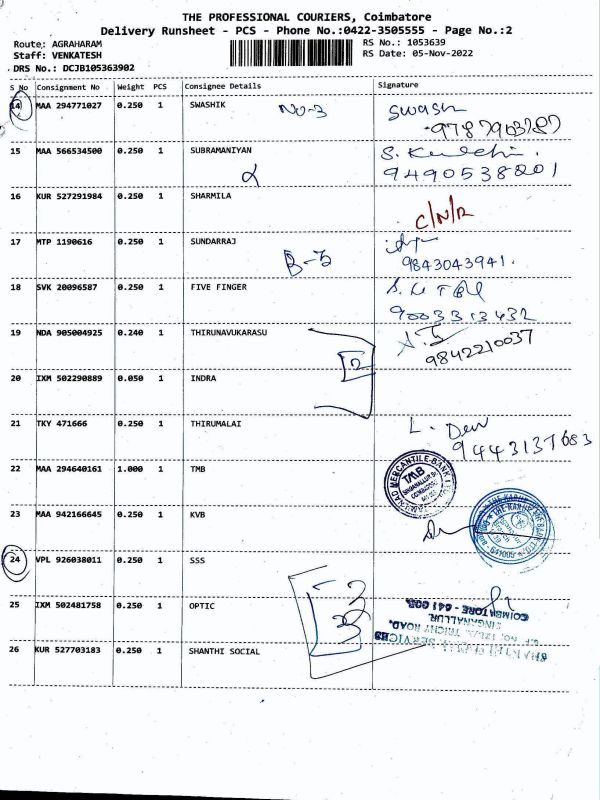 THE PROFESSIONAL COURIERS, Coimbatore
Delivery Runsheet - PCS - Phone No.:0422-3505555 - Page No.:2
Route: AGRAHARAM
Staff: VENKATESH
DRS No.: DCJB105363902
RS No.: 1053639
RS Date: 05-Nov-2022
S No Consignment No Weight PCS Consignee Details Signature
14 MAA 294771027 0.250 1 SWASHIK NO-3 Swash
9787903787
15 MAA 566534500 0.250 1 SUBRAMANIYAN
9490538201
16 KUR 527291984 0.250 1 SHARMILA
C/N/R
17 MTP 1190616 0.250 1 SUNDARRAJ B-5
9843043941.
18 SVK 20096587 0.250 1 FIVE FINGER
9003313432
19 NDA 905004925 0.240 1 THIRUNAVUKARASU
9842210037
20 IXM 502290889 0.050 1 INDRA
21 TKY 471666 0.250 1 THIRUMALAI L. Devi
9443137683
22 MAA 294640161 1.000 1 TMB
TMB
23 MAA 942166645 0.250 1 KVB
24 VPL 926038011 0.250 1 SSS
25 IXM 502481758 0.250 1 OPTIC
COIMBATORE - 641 005.
SINGANALLUR,
TRICHY ROAD,
SERVICES
26 KUR 527703183 0.250 1 SHANTHI SOCIAL